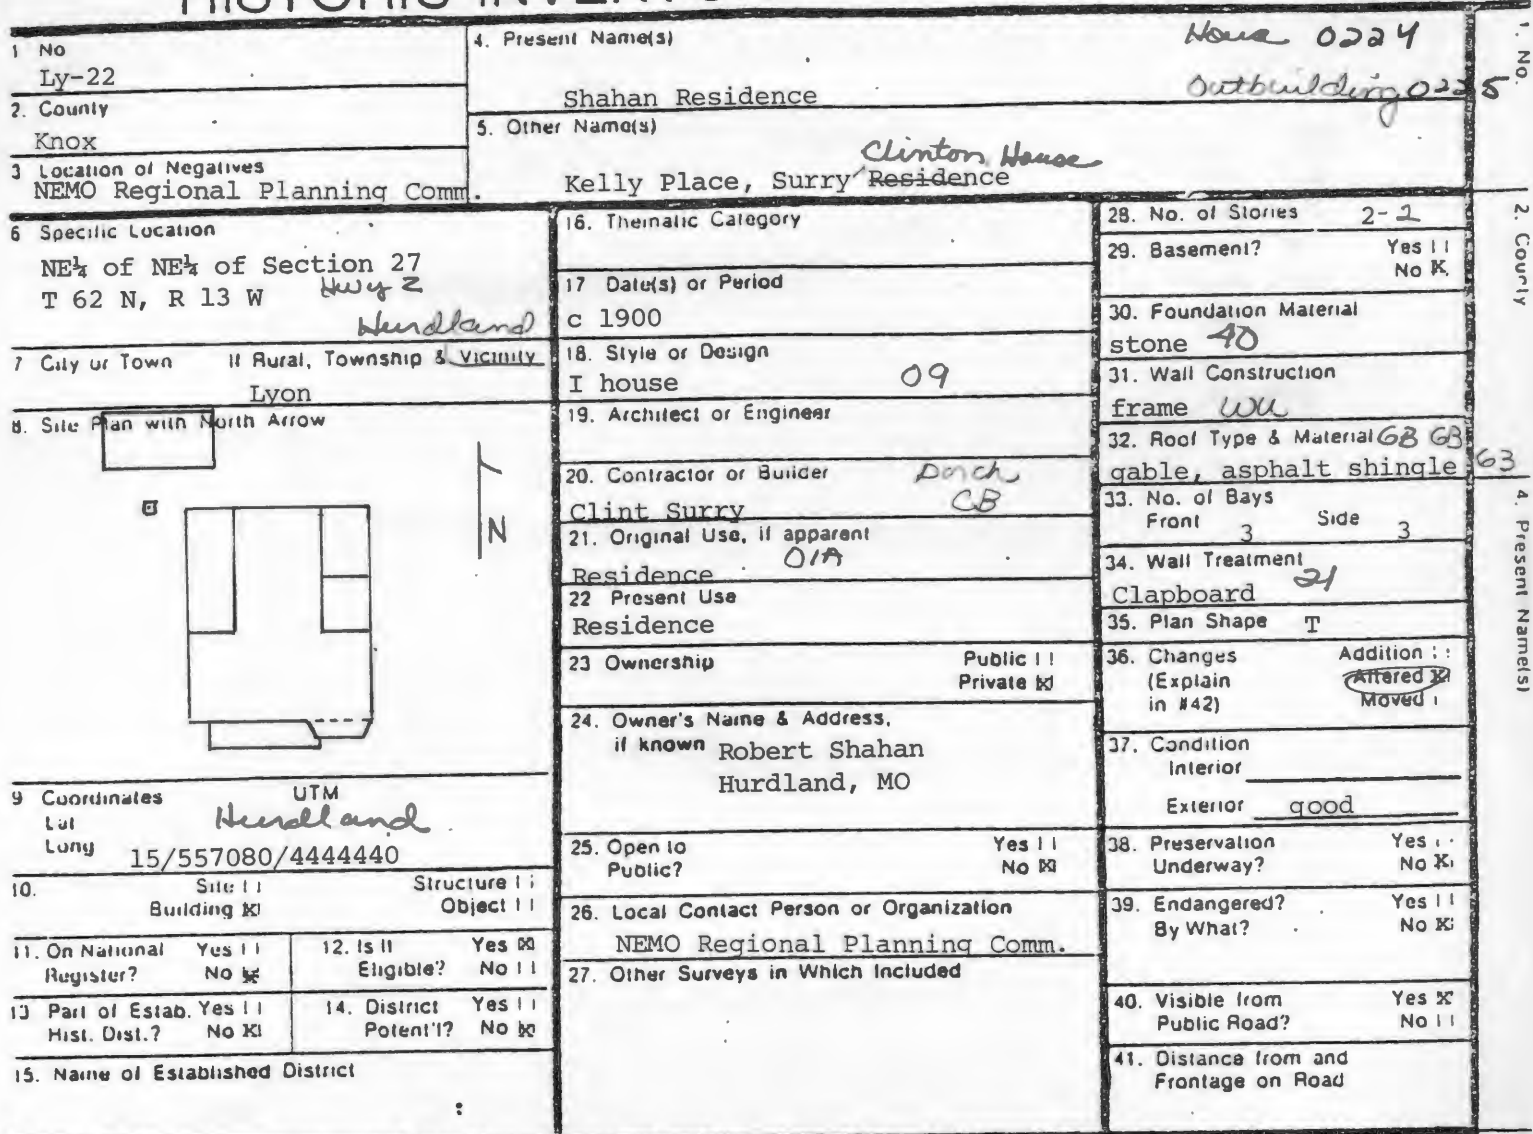 HISTORIC INVENTO
1 No
Ly-22
2. County
Knox
3 Location of Negatives
NEMO Regional Planning Comm.
4. Present Name(s)
House 0224
Outbuilding 0225
Shahan Residence
5. Other Name(s)
Clinton House
Kelly Place, Surry Residence
6 Specific Location
NE¼ of NE¼ of Section 27
T 62 N, R 13 W Hwy Z
Hurdland
7 City or Town If Rural, Township & Vicinity
Lyon
8. Site Plan with North Arrow
N
9 Coordinates UTM
Lat Hurdland
Long
15/557080/4444440
10. Site [ ] Structure [ ]
Building [X] Object [ ]
11. On National Register? Yes [ ] No [X]
12. Is It Eligible? Yes [X] No [ ]
13 Part of Estab. Hist. Dist.? Yes [ ] No [X]
14. District Potent'l? Yes [ ] No [X]
15. Name of Established District
16. Thematic Category
17 Date(s) or Period
c 1900
18. Style or Design
I house 09
19. Architect or Engineer
20. Contractor or Builder Porch
Clint Surry CB
21. Original Use, if apparent
Residence 01A
22 Present Use
Residence
23 Ownership Public [ ]
Private [X]
24. Owner's Name & Address,
if known Robert Shahan
Hurdland, MO
25. Open to Yes [ ]
Public? No [X]
26. Local Contact Person or Organization
NEMO Regional Planning Comm.
27. Other Surveys in Which Included
28. No. of Stories 2-2
29. Basement? Yes [ ]
No X
30. Foundation Material
stone 40
31. Wall Construction
frame WU
32. Roof Type & Material GB GB
gable, asphalt shingle 63
33. No. of Bays
Front 3 Side 3
34. Wall Treatment
Clapboard 21
35. Plan Shape T
36. Changes Addition [ ]
(Explain Altered [X]
in #42) Moved [ ]
37. Condition
Interior
Exterior good
38. Preservation Yes [ ]
Underway? No [X]
39. Endangered? Yes [ ]
By What? No [X]
40. Visible from Yes [X]
Public Road? No [ ]
41. Distance from and
Frontage on Road
1. No.
2. County
4. Present Name(s)